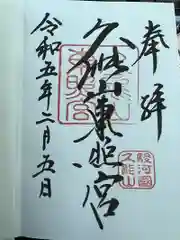 奉拝
久能山東照宮
令和五年二月五日
駿河國
久能山